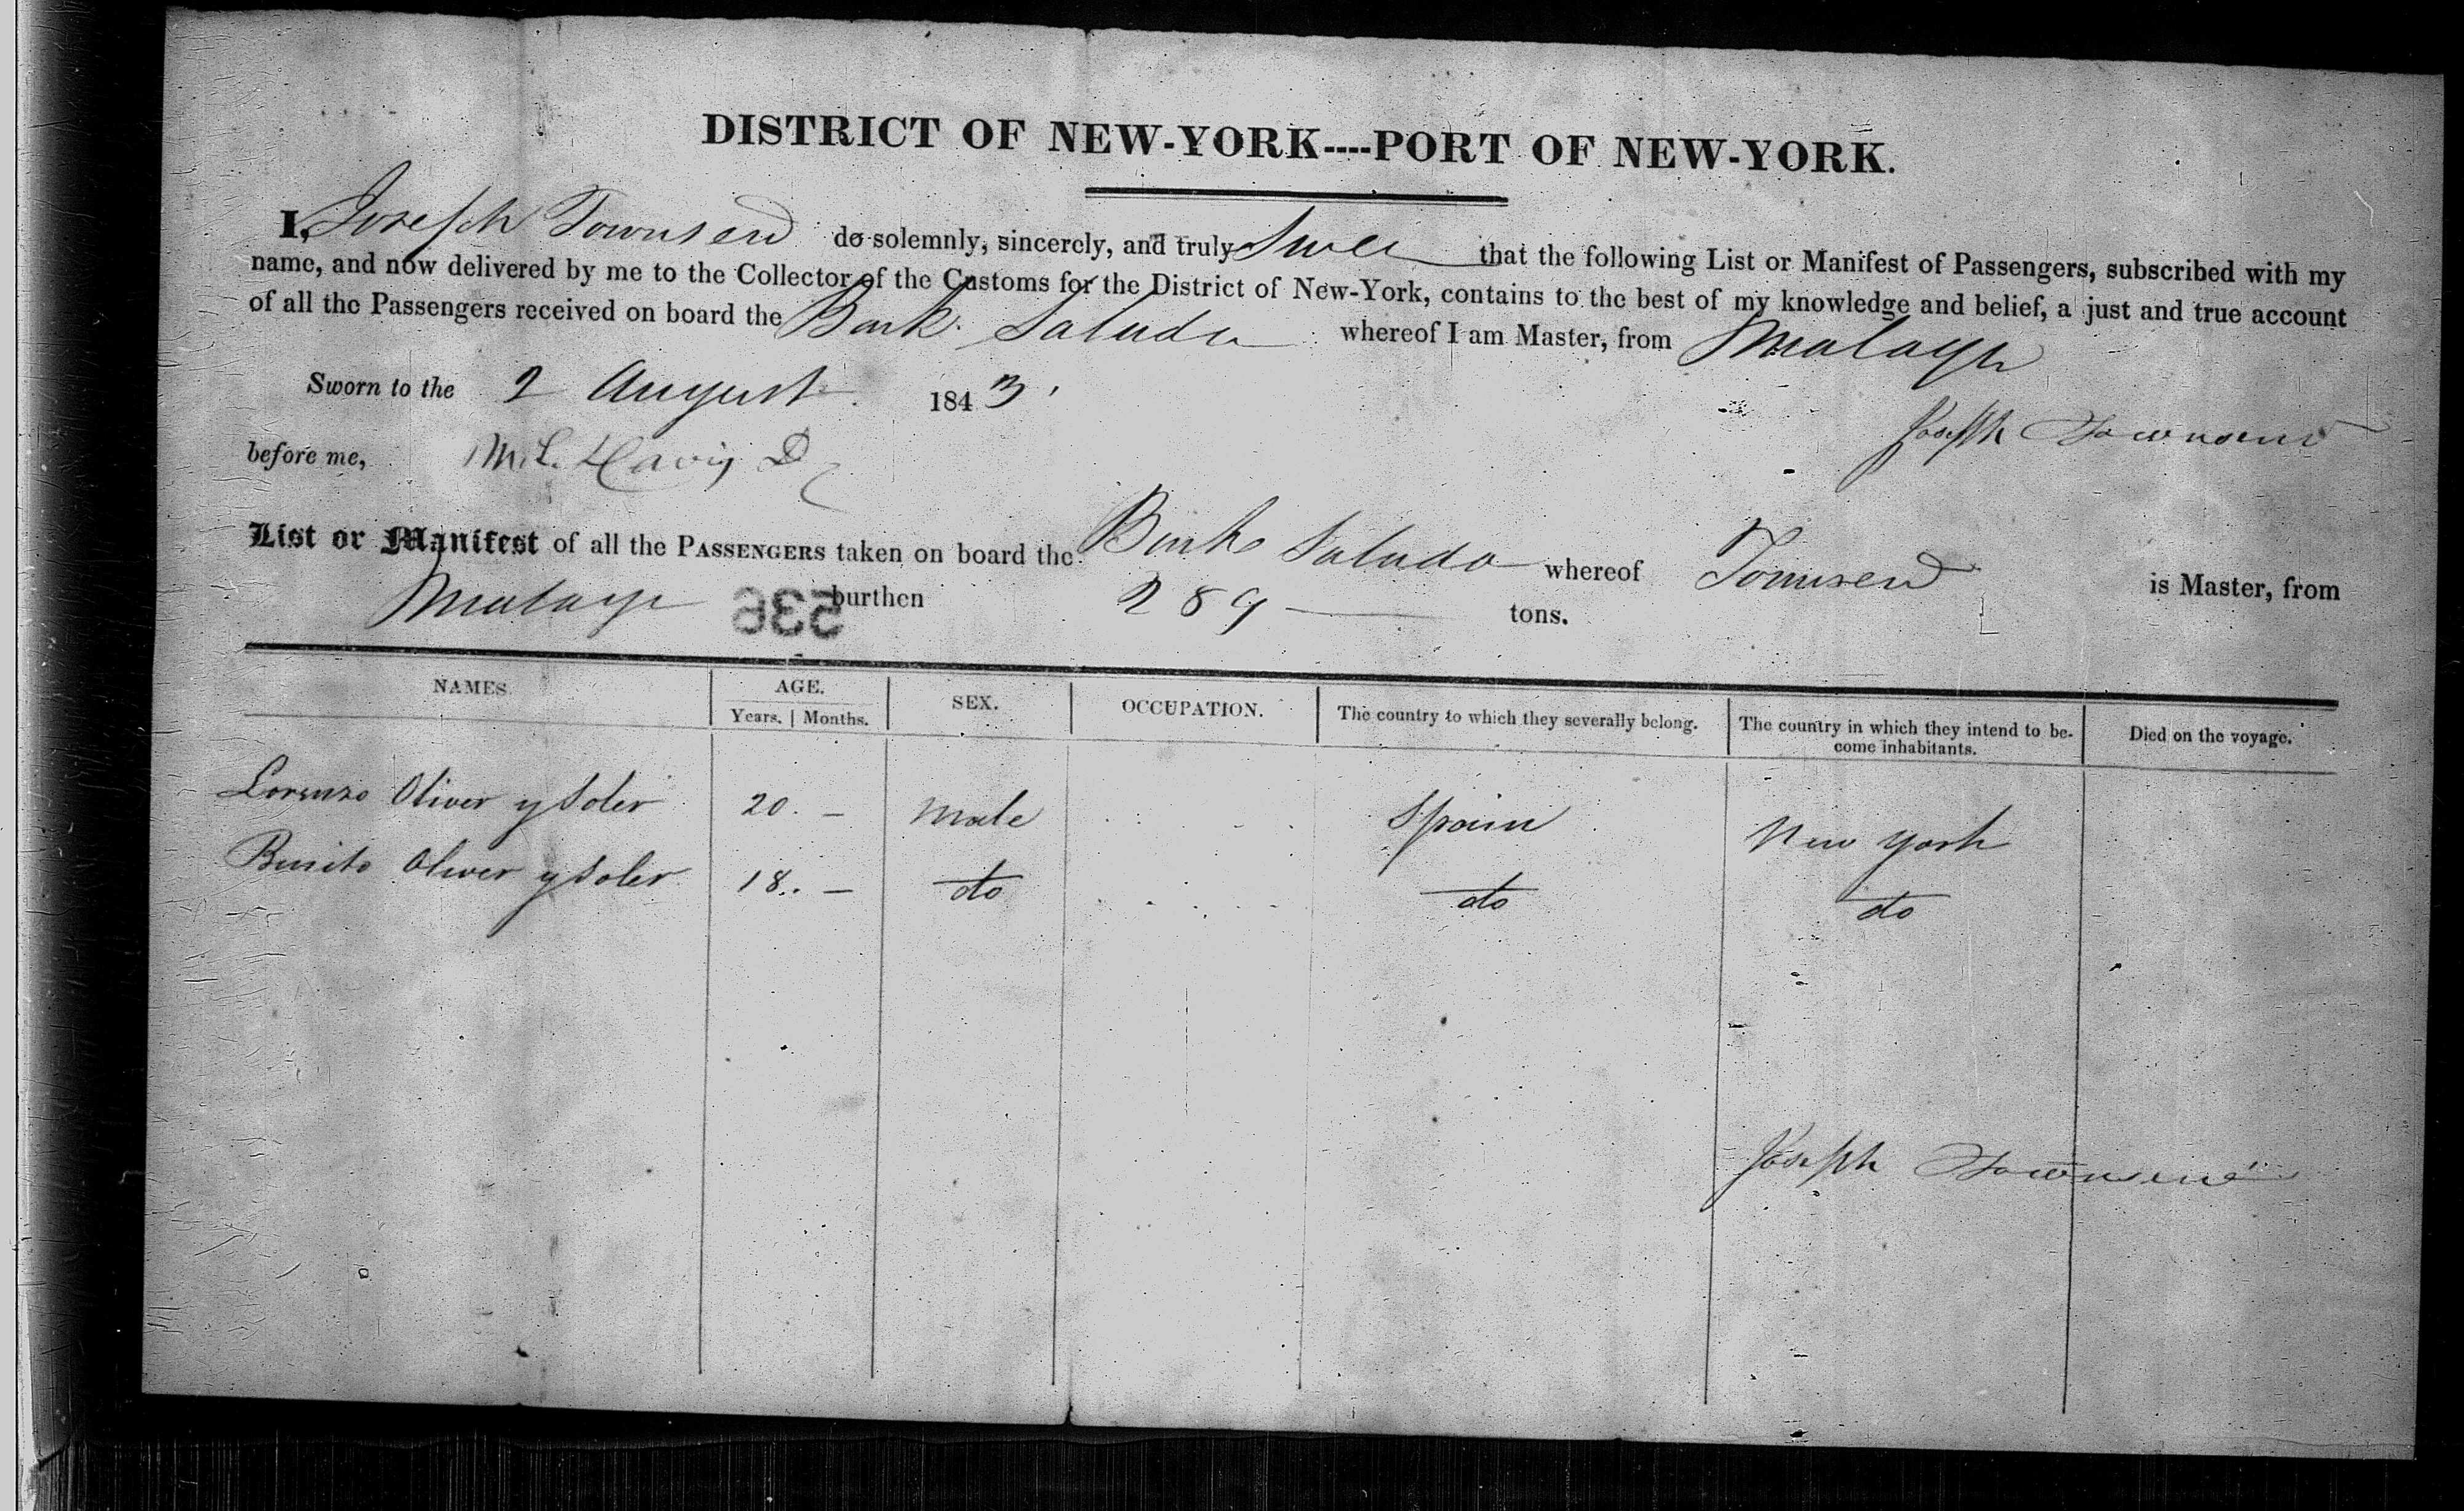 DISTRICT OF NEW-YORK----PORT OF NEW-YORK.
I, Joseph Townsend do solemnly, sincerely, and truly Swear that the following List or Manifest of Passengers, subscribed with my
name, and now delivered by me to the Collector of the Customs for the District of New-York, contains to the best of my knowledge and belief, a just and true account
of all the Passengers received on board the Bark Saluda whereof I am Master, from Malaga
Sworn to the 2 August 1843
Joseph Townsend
before me, Davis D
List or Manifest of all the PASSENGERS taken on board the Barke Saluda whereof Townsend is Master, from
Malaga burthen 289 tons.
536
NAMES. AGE. SEX. OCCUPATION. The country to which they severally belong. The country in which they intend to be- Died on the voyage.
Years. | Months. come inhabitants.
Lorenzo Oliver y Soler 20. – male Spain New York
Benito Oliver y Soler 18.. – do do do
Joseph Townsend